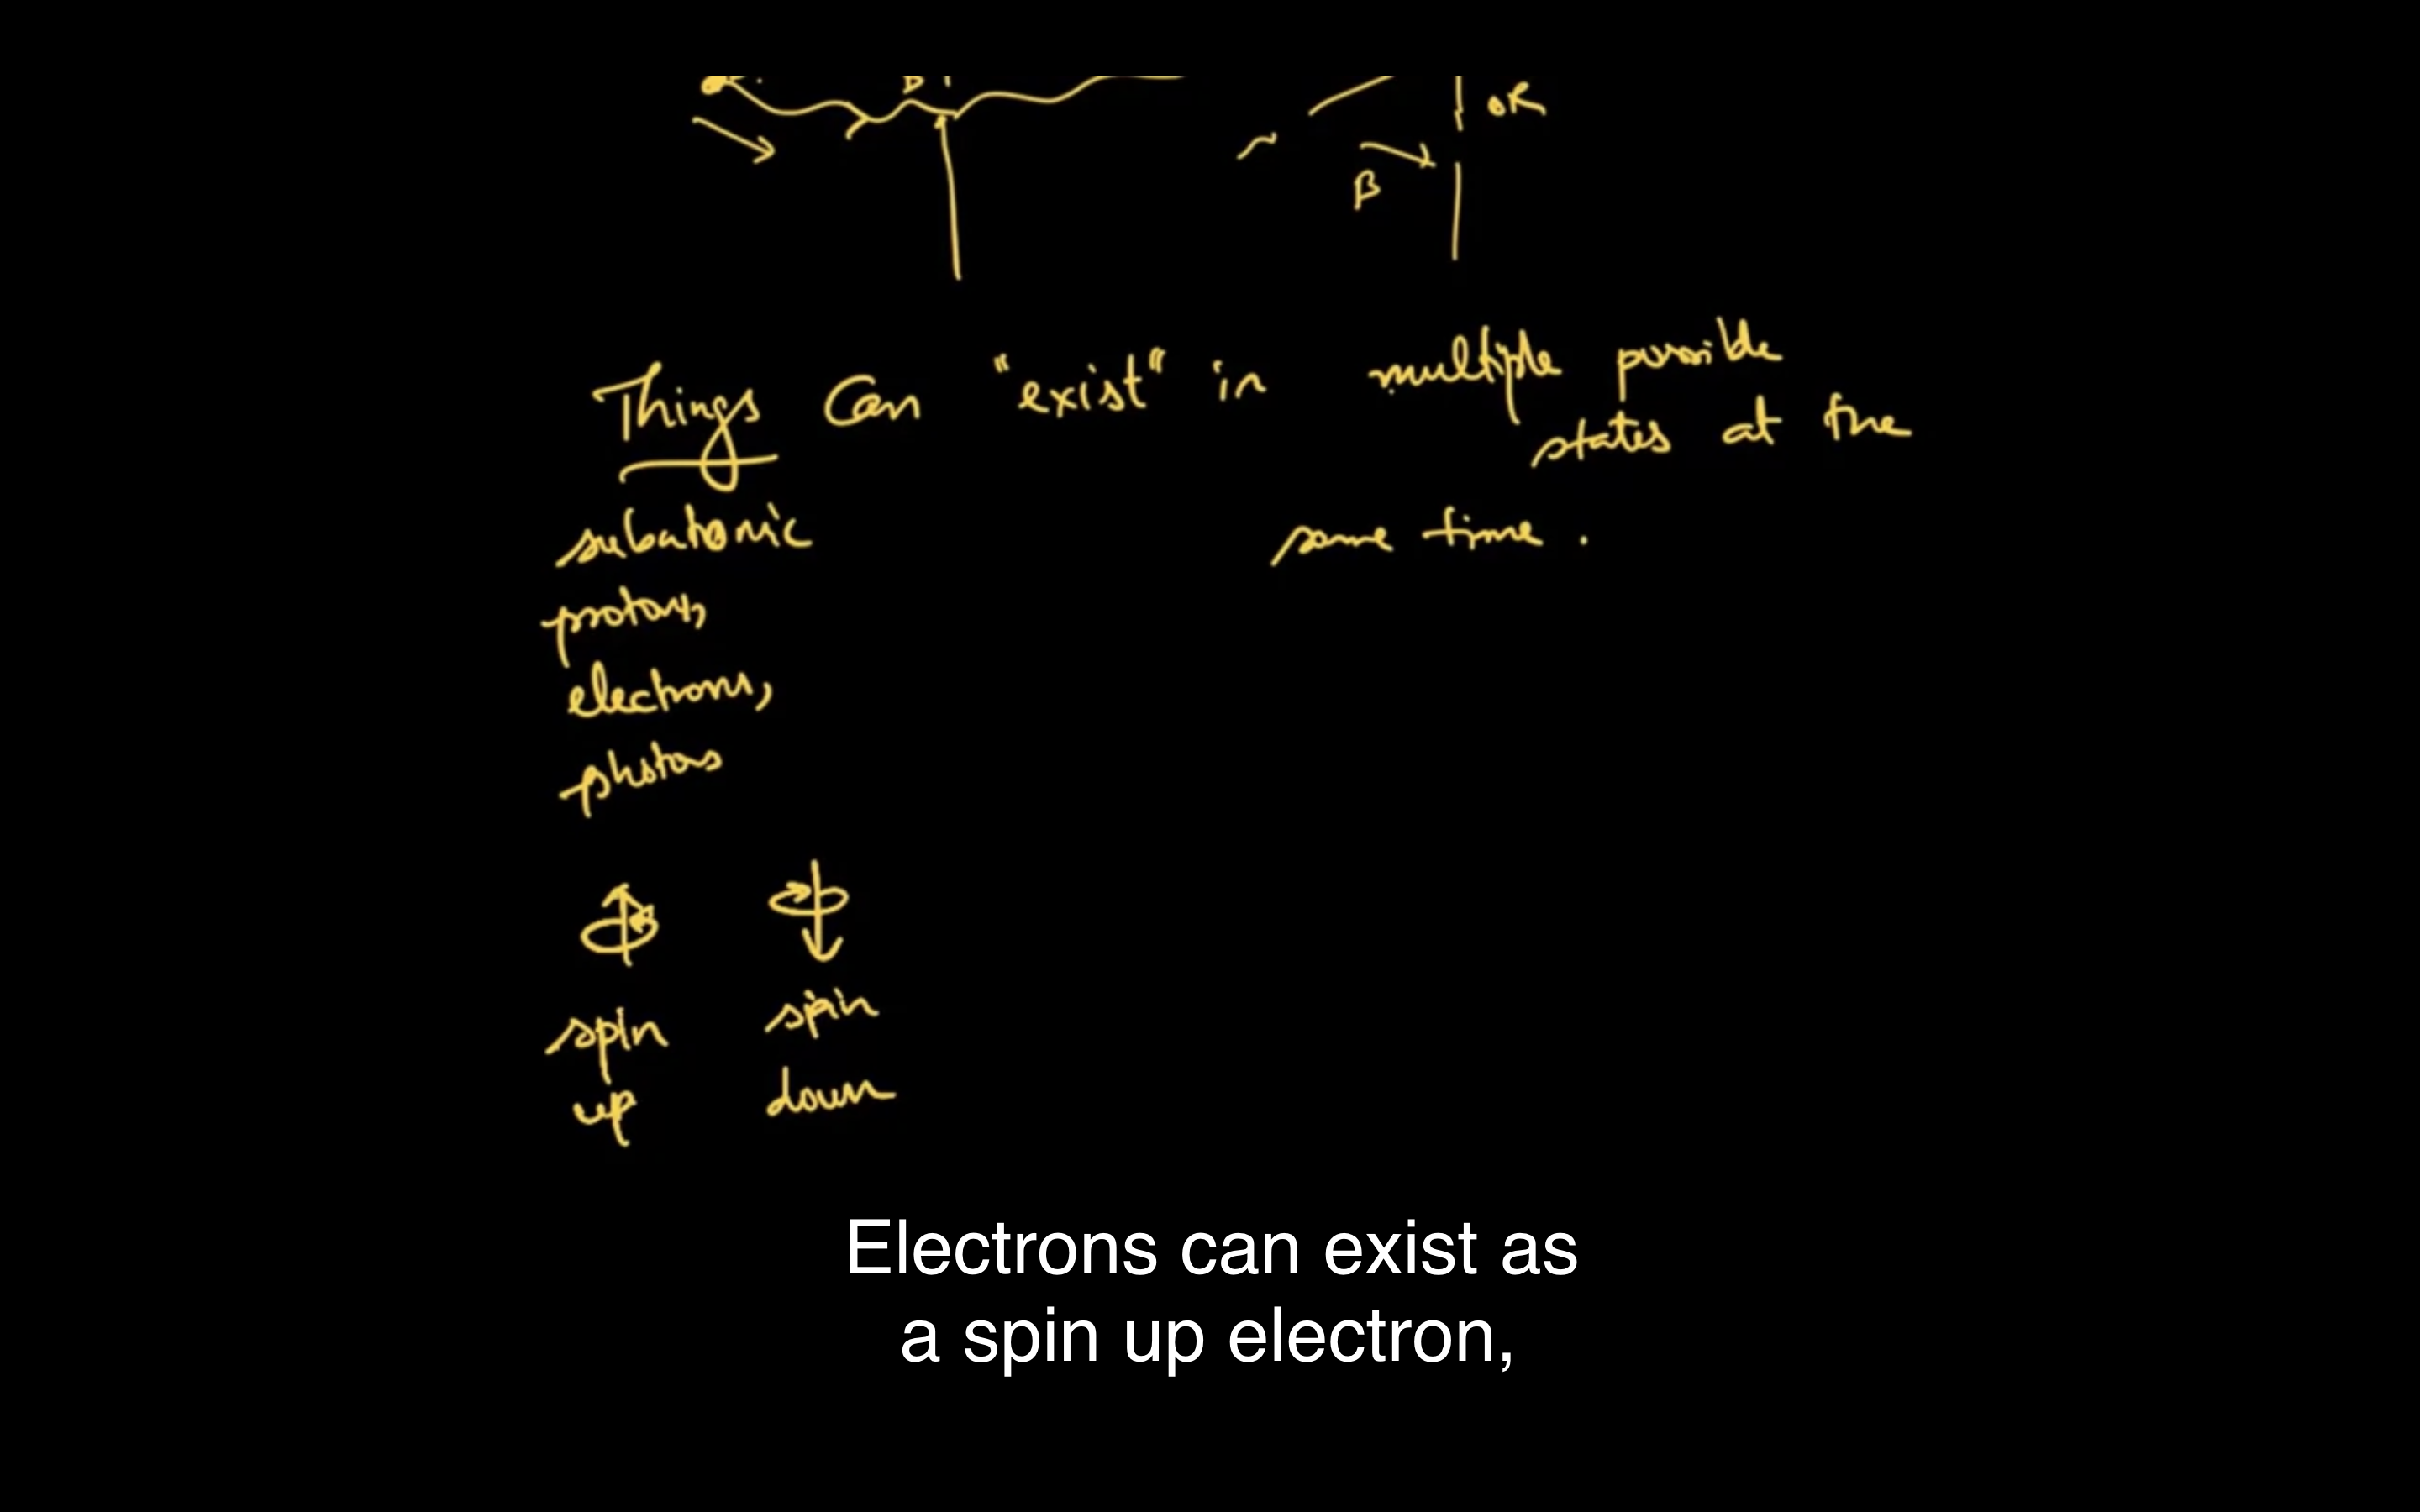 B
OR
B
Things Can "exist" in multiple possible
states at the
same time.
subatomic
protons,
electrons,
photons
spin up
spin down
Electrons can exist as
a spin up electron,